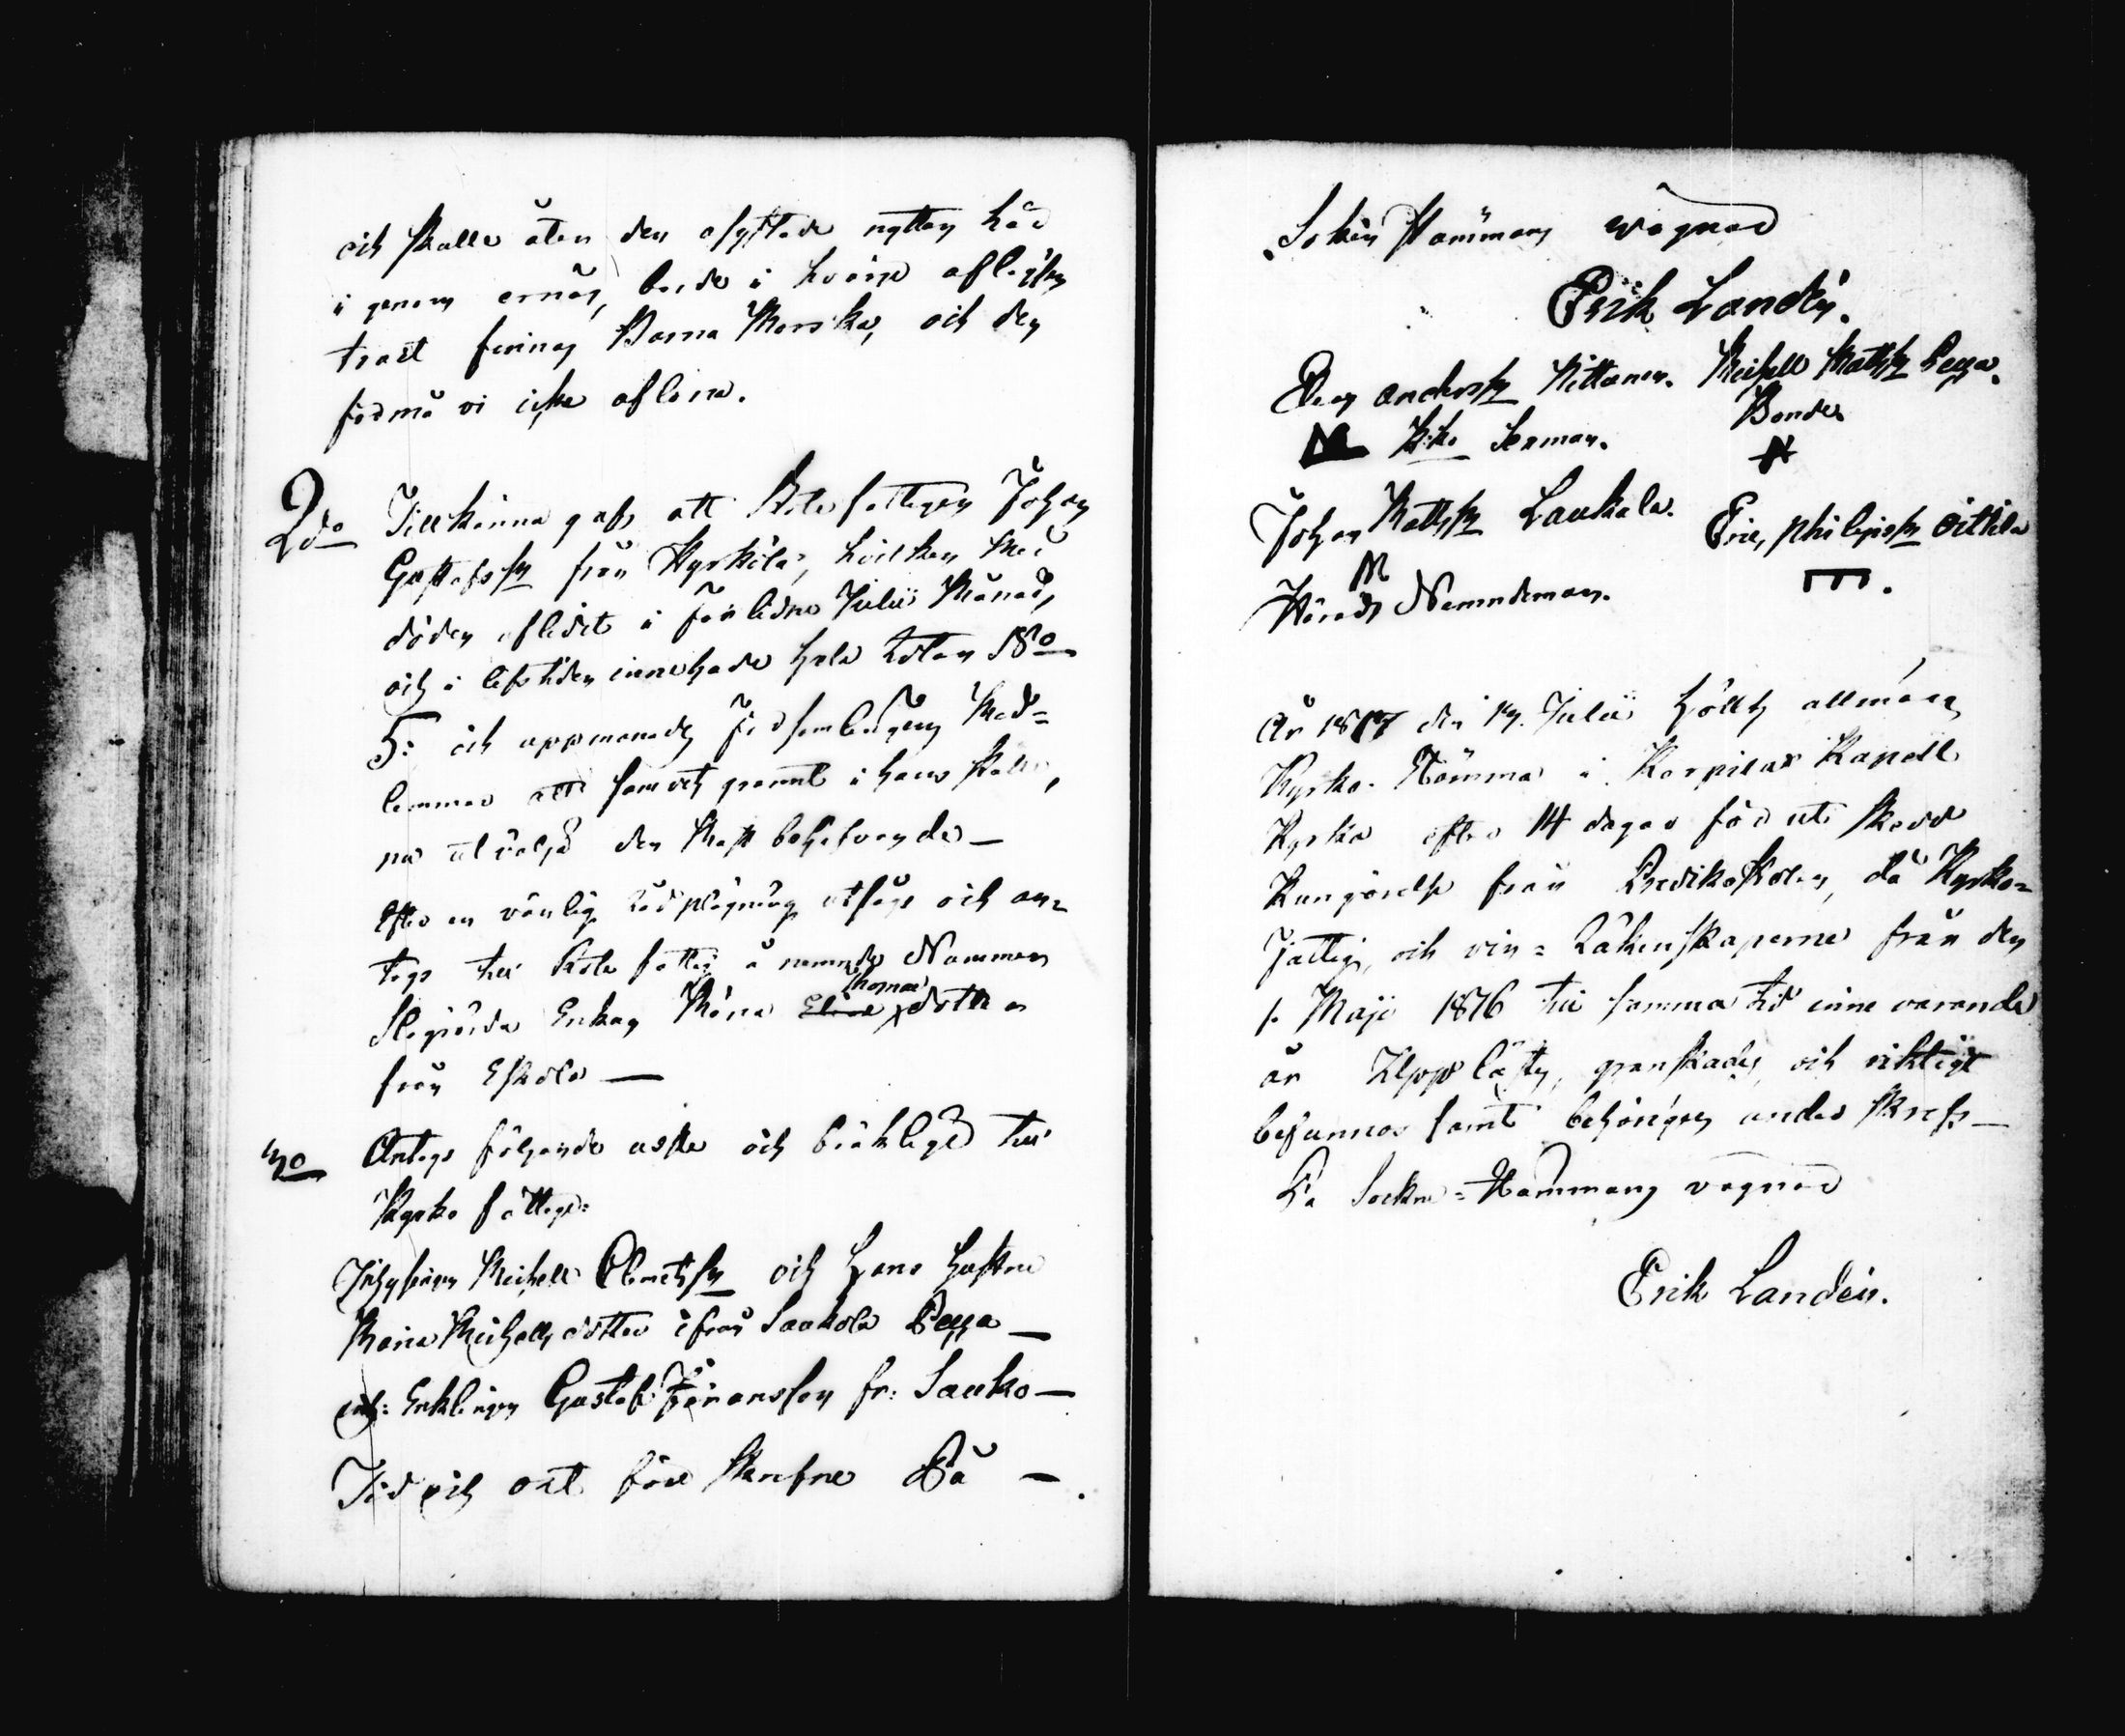 och skulle åter den åsyftade nyttan här
igenom ernås, borde i hvarje aflägsen
trakt finnas Barna Morska, och den
förmå vi icke aflöna.
2do Tillkänna gafs att Rote fattigen Johan
Gustafss:n från Kyrkölä, hvilken med
döden aflidit i förlidne Julii Månad,
och i lifstiden innehade hela Rotan No
5: och uppmanades församlingens Med=
lemmar att samvetsgrannt i hans ställe,
nu utvälja den mest behöfvande —
Efter en vänlig rådplägning utsågs och an=
togs till Rote fattig å nemnde Nummer
Afskjeda Enkan Maria Thomæ dotter
från Eskola —
3o Antogs följande usle och bräklige till
Kyrko fattige:
Inhysingen Michell Clemetss:n och hans hustru
Maria Michells dotter ifrån Saukola Pexa —
inh: Enklingen Gustaf Göransson fr: Sauko —
Tid och ort före skrefne På —
Sokne Stämmans vägnar
Erik Landén.
Anders:n Kittanen. Michell Matss:n Pexa.
Kyrko Sexman. Bonde.
Johan Mattss:n Laukala. Eric, Philipss:n Eittilä
M
Härads Nemndeman.
År 1817 den 19. Julii hölltz allmän
Kyrko-Stämma i Karpilax Kapell
Kyrka efter 14 dagar förut skedd
Kungörelse från Predikostolen, då Kyrko=
fattigs, och vin= Räkenskaperne från den
1. Maji 1816 till samma tid inne varande
år Uppläsley, granskades och riktige
befunnos samt behörigen under skrefs —
På Sockne=Stämmans vägnar
Erik Landén.